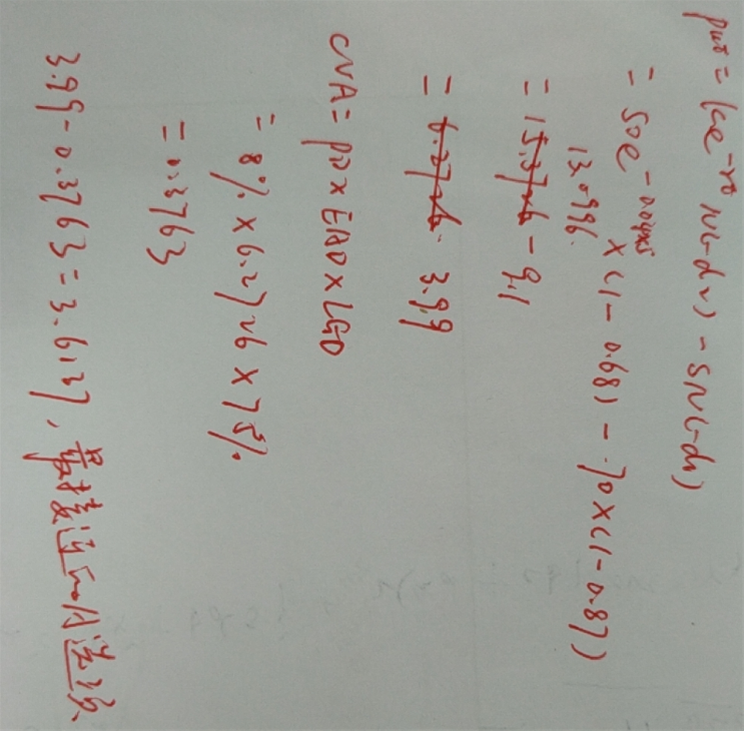 put = Ke^-rt N(-d2) - SN(-d1)
= 50e^-0.04×5 × (1-0.68) - 70×(1-0.87)
13.0996
= 15.3726 - 9.1
= 6.2726 3.99
CVA = PD × EAD × LGD
= 8% × 6.2726 × 75%
= 0.3763
3.99 - 0.3763 = 3.6137, 最接近的选项